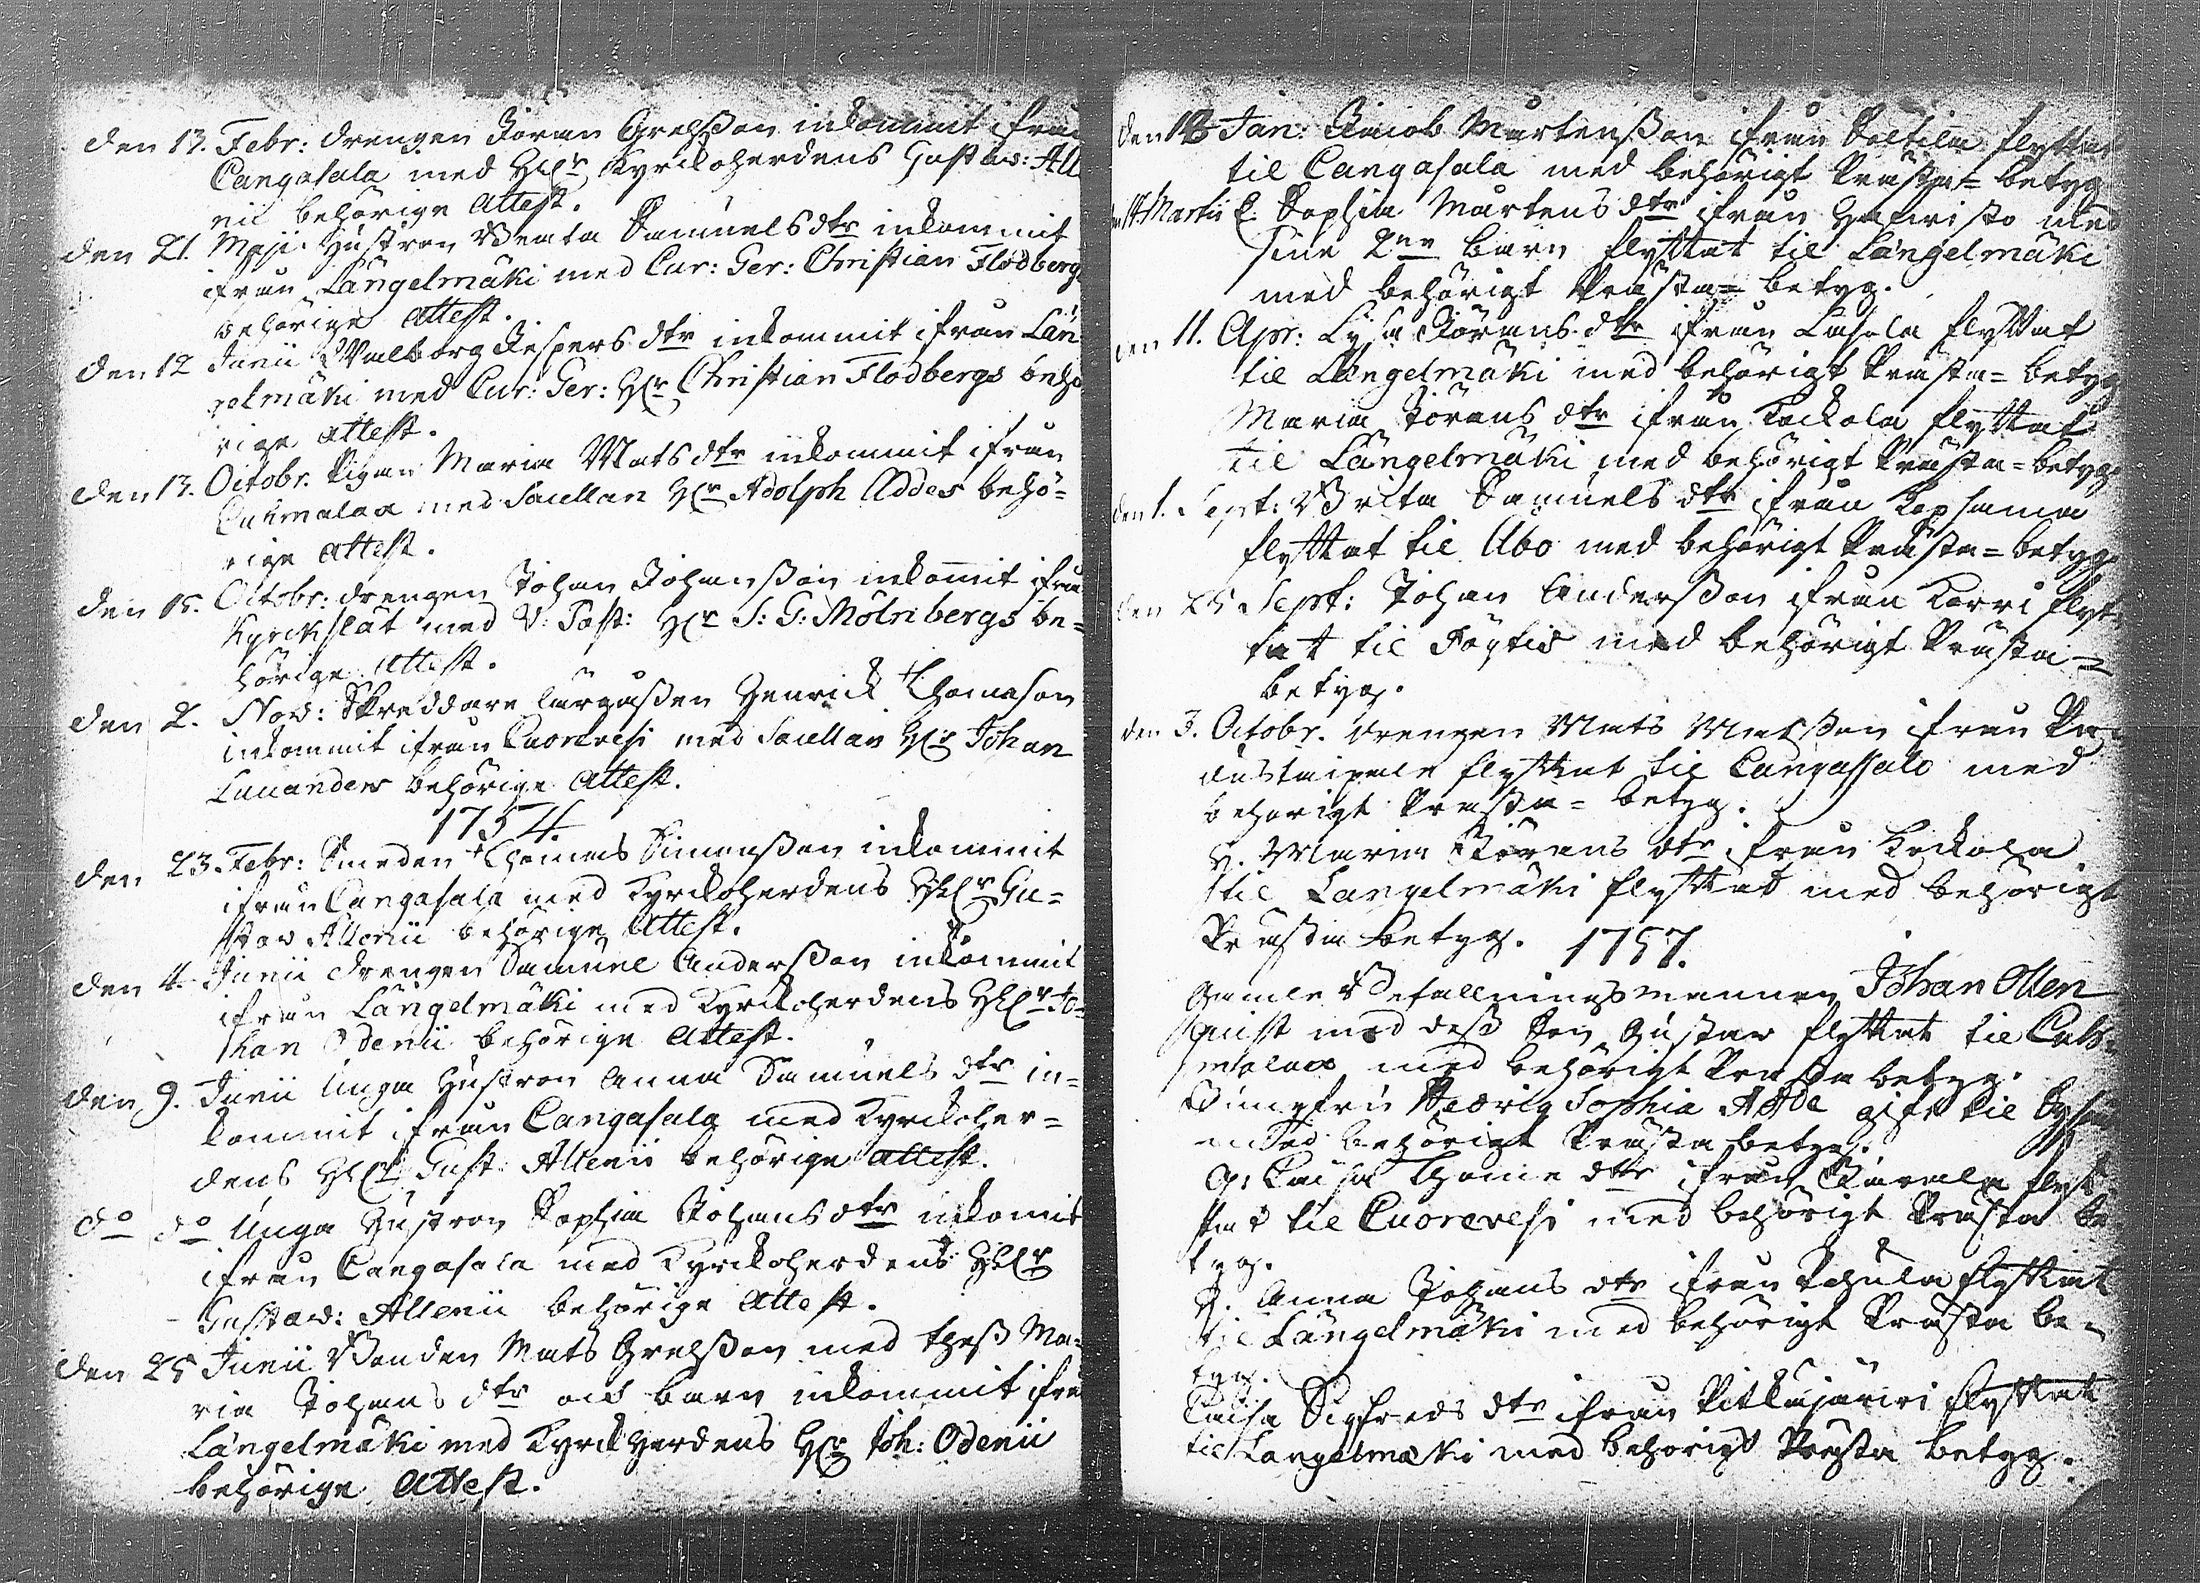 den 13. Febr: drengen Jöran Grelsson inkommit ifrån
Cangasala med H:r Kyrckoherdens Gustav: All
nii behörige Attest.
den 21. Maji Hustron Beata Samuels dtr inkommit
ifrån Längelmäki med Cur: Ger: Christian Flodbergs
behörige Attest.
den 12 Junii Walborg Jespers dtr inkommit ifrån Län
gelmäki med Cur: Ger: Hr Christian Flodbergs behö
rige Attest.
den 13. Octobr. Pigan Maria Mats dtr inkommit ifrån
med Sacellan Hr Adolph Addes behö=
rige Attest.
den 15. Octobr: drengen Johan Johansson inkommit ifrån
Kyrckslät med V: Past: Hr S: G: Mölnbergs be=
hörige Attest.
den 2. Nov: Skreddare Henrick Thomasson
inkommit ifrån Cuorevesi med Sacellan Hr Johan
Lauanders behörige Attest.
1754.
den 23. Febr: Smeden Thomas Simonsson inkommit
ifrån Cangasala med Kyrckoherdens H:r Gu=
stav Allenii behörige Attest.
den 4. Junii drengen Samuel Andersson inkommit
ifrån Längelmäki med Kyrckoherdens H:r Jo=
han Odenii behörige Attest.
den 9. Junii Unga Hustron Anna Samuels dtr in=
kommit ifrån Cangasala med Kyrckoher=
dens H:r Gust: Allenii behörige Attest.
do do Unga Hustron Sophia Johans dtr inkomit
ifrån Cangasala med Kyrckoherdens H:r
Gustav: Allenii behörige Attest.
den 25 Junii Bonden Mats Grelsson med thess Ma=
ria Johans dtr och barn inkommit ifrån
Längelmäki med Kyrckherdens Hr Joh: Odenii
behörige Attest.
den Jan: Jacob Mårtensson ifrån Saltila flyttat
til Cangasala med behörigt Prästa= betyg
14 Martii E. Sophia Mårtens dtr ifrån med
sine 2ne barn flyttat til Längelmäki
med behörigt Prästa= betyg.
den 11. Apr: Lisa Jörans dtr ifrån flyttat
til Längelmäki med behörigt Prästa= betyg
Maria Jörans dtr ifrån Kockola flyttat
til Längelmäki med behörigt Prästa= betyg
den 1. Sept: Brita Samuels dtr ifrån Kopsama
flyttat til Åbo med behörigt Prästa= betyg
den 25 Sept: Johan Andersson ifrån Korri flyt
tat til med behörigt Prästa=
betyg.
den 3. Octobr. drengen Mats Matsson ifrån
flyttat til Cangassalo med
behörigt Prästa= betyg.
H. Maria Jörans dtr ifrån Kockola
til Langelmäki flyttat med behörigt
Prästa betyg. 1757.
Gamle Befallningsmannen Johan Allen
quist med dess Son Gustav flyttat til
med behörigt Prästa betyg.
Jungfru Hedvig Sophia Adde gift til
med behörigt Prästa betyg.
Caisa Thome dtr ifrån flyt
tat til Cuorevesi med behörigt Prästa be
tyg.
P. Anna Johans dtr ifrån flyttat
til Längelmäki med behörigt Prästa be=
tyg.
Caisa Sigfreds dtr ifrån Pitkäjärvi flyttat
til Langelmäki med behörigt Prästa betyg.